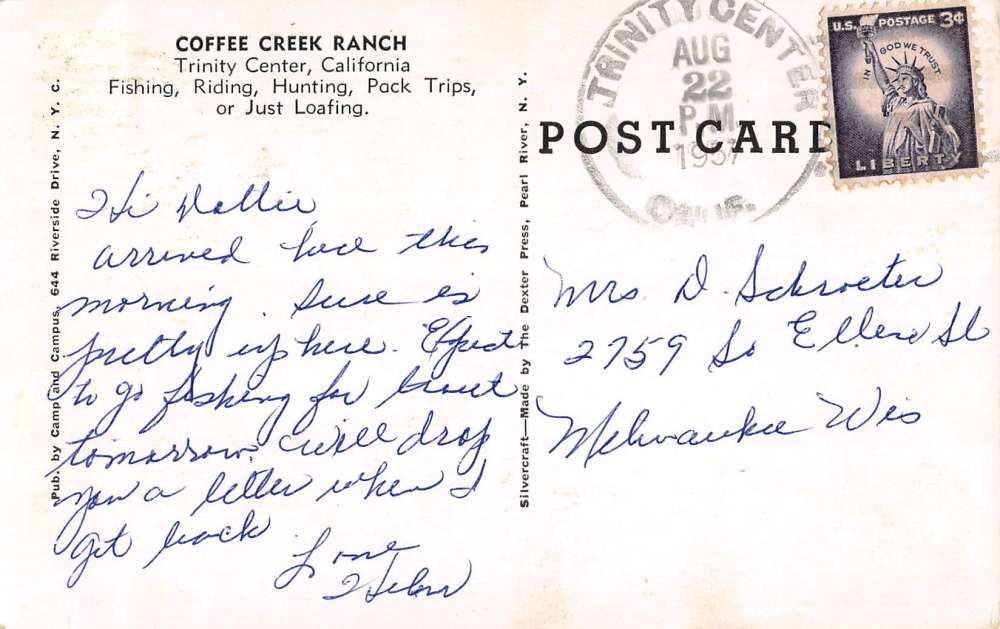 COFFEE CREEK RANCH
Trinity Center, California
Fishing, Riding, Hunting, Pack Trips,
or Just Loafing.
Pub. by Camp and Campus, 644 Riverside Drive, N. Y. C.
Hi Dollie
arrived here this
morning. Sure is
pretty up here. Expect
to go fishing for trout
tomorrow. Will drop
you a letter when I
get back
Love
Helen
Silvercraft—Made by The Dexter Press, Pearl River, N. Y.
POST CARD
TRINITY CENTER
AUG
22
P.M.
1957
CALIF.
U.S. POSTAGE 3¢
IN GOD WE TRUST
LIBERTY
Mrs. D. Schroeter
2759 So Ellen St
Milwaukee Wis